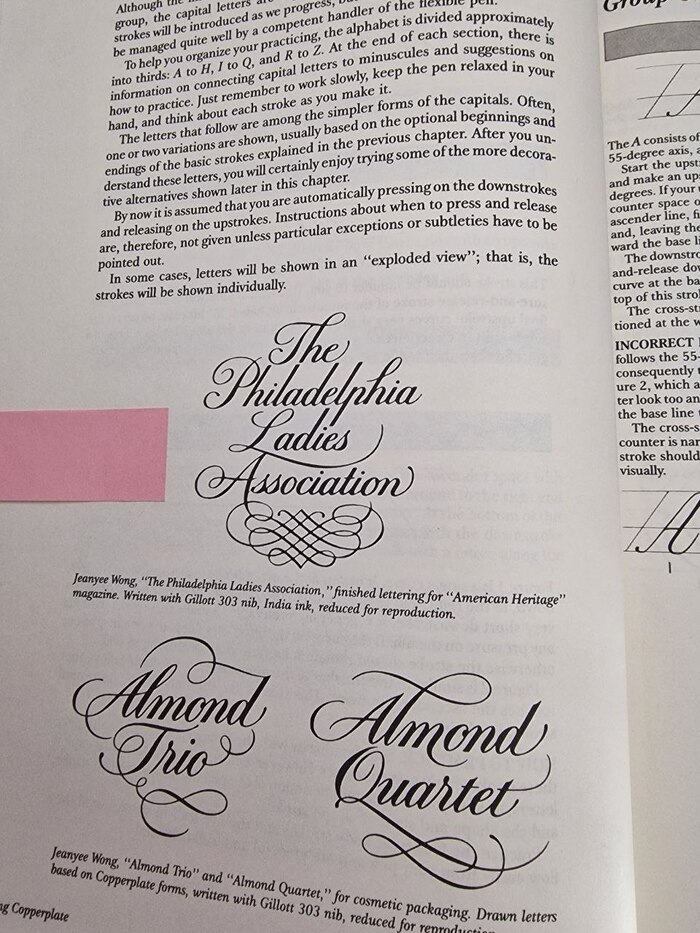 Although the
group, the capital letters are
strokes will be introduced as we progress,
be managed quite well by a competent handler of the flexible pen.
To help you organize your practicing, the alphabet is divided approximately
into thirds: A to H, I to Q, and R to Z. At the end of each section, there is
information on connecting capital letters to minuscules and suggestions on
how to practice. Just remember to work slowly, keep the pen relaxed in your
hand, and think about each stroke as you make it.
The letters that follow are among the simpler forms of the capitals. Often,
one or two variations are shown, usually based on the optional beginnings and
endings of the basic strokes explained in the previous chapter. After you un-
derstand these letters, you will certainly enjoy trying some of the more decora-
tive alternatives shown later in this chapter.
By now it is assumed that you are automatically pressing on the downstrokes
and releasing on the upstrokes. Instructions about when to press and release
are, therefore, not given unless particular exceptions or subtleties have to be
pointed out.
In some cases, letters will be shown in an “exploded view”; that is, the
strokes will be shown individually.
The
Philadelphia
Ladies
Association
Jeanyee Wong, “The Philadelphia Ladies Association,” finished lettering for “American Heritage”
magazine. Written with Gillott 303 nib, India ink, reduced for reproduction.
Almond
Trio
Almond
Quartet
Jeanyee Wong, “Almond Trio” and “Almond Quartet,” for cosmetic packaging. Drawn letters
based on Copperplate forms, written with Gillott 303 nib, reduced for
Copperplate
The A consists of
55-degree axis,
Start the upst
and make an up
degrees. If your
counter space
ascender line,
and, leaving the
ward the base
The downstr
and-release
curve at the
top of this
The
tioned at the
INCORRECT
follows the 55-
consequently
ure 2, which
ter look too
the base line
The cross-s
counter is
stroke should
visually.
A